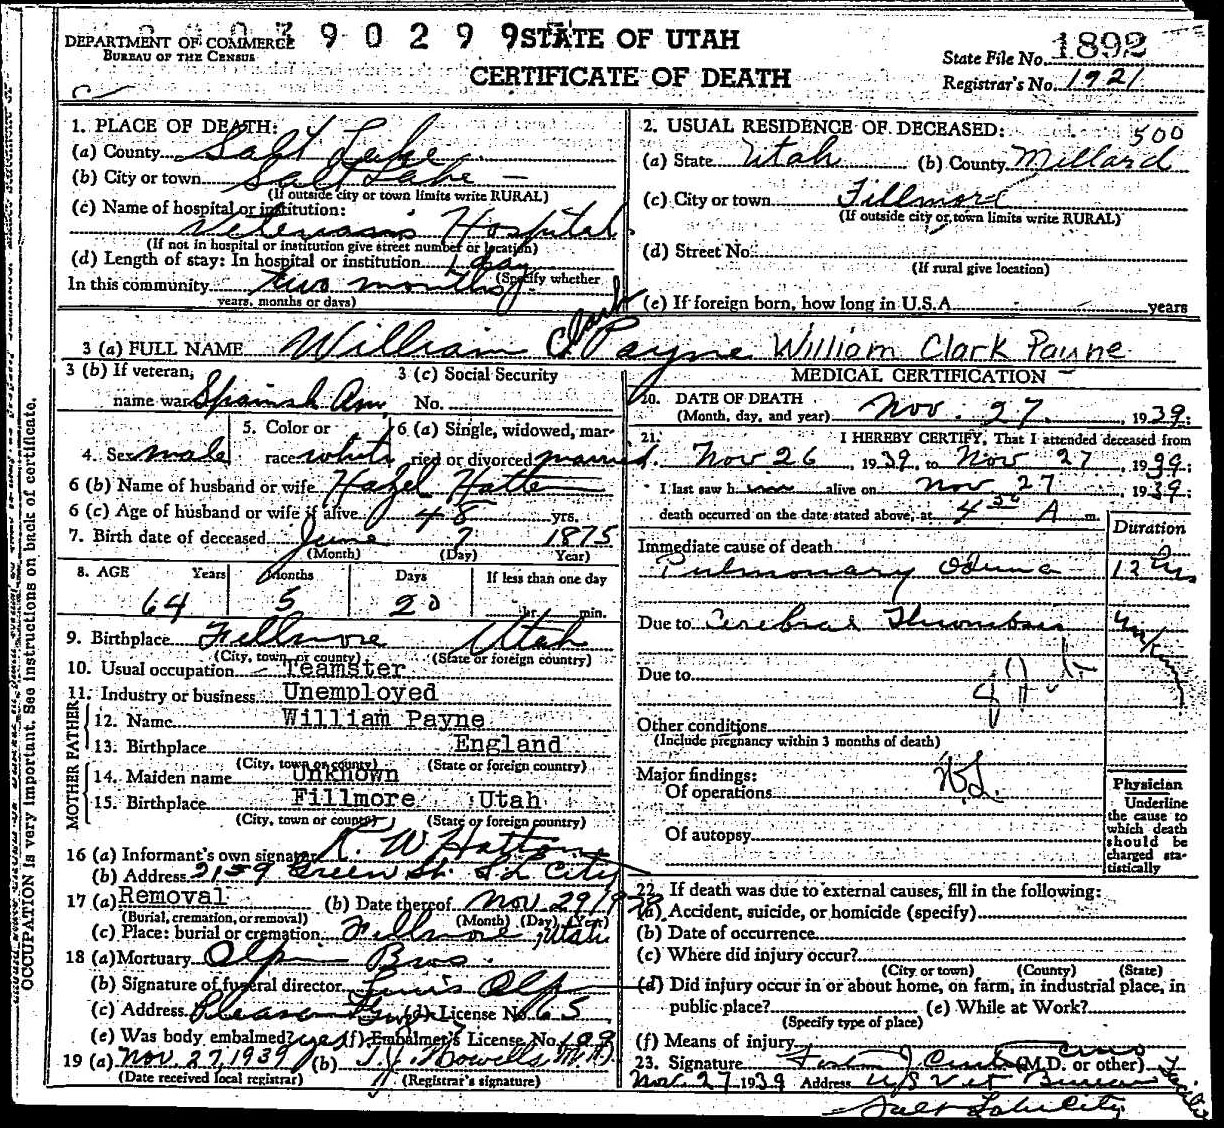 390299 STATE OF UTAH
DEPARTMENT OF COMMERCE
BUREAU OF THE CENSUS
CERTIFICATE OF DEATH
State File No. 1892
Registrar's No. 1921
1. PLACE OF DEATH:
(a) County Salt Lake
(b) City or town Salt Lake
(If outside city or town limits write RURAL)
(c) Name of hospital or institution:
Veterans Hospital
(If not in hospital or institution give street number or location)
(d) Length of stay: In hospital or institution 1 day
(Specify whether
In this community two months
years, months or days)
2. USUAL RESIDENCE OF DECEASED: 500
(a) State Utah (b) County Millard
(c) City or town Fillmore
(If outside city or town limits write RURAL)
(d) Street No.
(If rural give location)
(e) If foreign born, how long in U.S.A. years
3 (a) FULL NAME William Clark Payne William Clark Payne
3 (b) If veteran, name war Spanish Am.
3 (c) Social Security No.
4. Sex male
5. Color or race white
6 (a) Single, widowed, married or divorced married.
6 (b) Name of husband or wife Hazel Hatton
6 (c) Age of husband or wife if alive 48 yrs.
7. Birth date of deceased June 7 1875
(Month) (Day) Year)
8. AGE Years Months Days If less than one day
64 5 20 hr. min.
9. Birthplace Fillmore Utah
(City, town or county) (State or foreign country)
10. Usual occupation Teamster
11. Industry or business Unemployed
FATHER
12. Name William Payne
13. Birthplace England
(City, town or county) (State or foreign country)
MOTHER
14. Maiden name Unknown
15. Birthplace Fillmore Utah
(City, town or county) (State or foreign country)
16 (a) Informant's own signature R. W. Hatton
(b) Address 2159 Green St. S L City
17 (a) Removal (b) Date thereof Nov. 29 1939
(Burial, cremation, or removal) (Month) (Day) (Year)
(c) Place: burial or cremation Fillmore, Utah
18 (a) Mortuary Olpin Bros.
(b) Signature of funeral director Lewis Olpin
(c) Address Pleasant Grove (d) License No. 65
(e) Was body embalmed? yes (f) Embalmer's License No. 109
19 (a) Nov. 27, 1939 (b) T. J. Howells M.D.
(Date received local registrar) (Registrar's signature)
MEDICAL CERTIFICATION
20. DATE OF DEATH
(Month, day, and year) Nov. 27. 1939.
21. I HEREBY CERTIFY, That I attended deceased from
Nov 26, 1939, to Nov 27, 1939.
I last saw him alive on Nov 27, 1939.
death occurred on the date stated above, at 4 50 A m.
Duration
Immediate cause of death
Pulmonary Odema 12 hrs
Due to Cerebral Thrombosis
Due to
Other conditions
(Include pregnancy within 3 months of death)
Major findings:
Of operations
Of autopsy
Physician
Underline
the cause to
which death
should be
charged sta-
tistically
22. If death was due to external causes, fill in the following:
(a) Accident, suicide, or homicide (specify)
(b) Date of occurrence
(c) Where did injury occur?
(City or town) (County) (State)
(d) Did injury occur in or about home, on farm, in industrial place, in
public place? (e) While at Work?
(Specify type of place)
(f) Means of injury
23. Signature J. Curtis (M.D. or other)
Nov. 27 1939 Address U S Vet Bureau Facility
Salt Lake City
OCCUPATION is very important. See instructions on back of certificate.